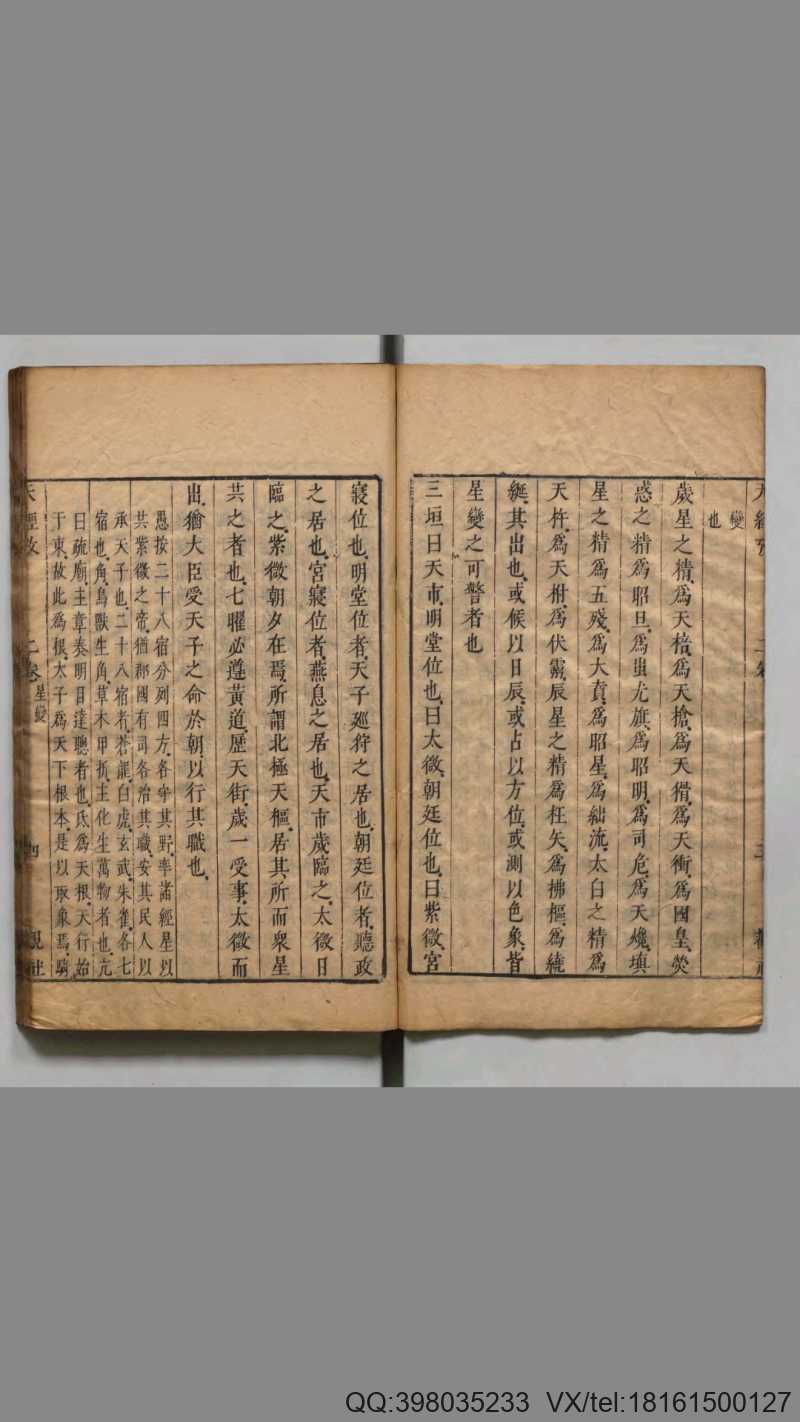 變
也
歲星之精爲天棓爲天搶爲天猾爲天衝爲國皇熒
惑之精爲昭旦爲蚩尤旗爲昭明爲司危爲天欃塡
星之精爲五殘爲大賁爲昭星爲絀流太白之精爲
天杵爲天柎爲伏靈辰星之精爲枉矢爲拂樞爲繞
綎其出也或候以日辰或占以方位或測以色象皆
星變之可警者也
三垣曰天市明堂位也曰太微朝廷位也曰紫微宮
寢位也明堂位者天子廵狩之居也朝廷位者聽政
之居也宮寢位者燕息之居也天市歲臨之太微日
臨之紫微朝夕在焉所謂北極天樞居其所而衆星
共之者也七曜必遵黃道歷天街歲一受事太微而
出猶大臣受天子之命於朝以行其職也
愚按二十八宿分列四方各守其野率諸經星以
共紫微之帝猶郡國有司各治其職安其民人以
承天子也二十八宿者蒼龍白虎玄武朱雀各七
宿也角鳥獸生角草木甲拆主化生萬物者也亢
曰疏廟主章奏明目達聰者也氐爲天根天行始
于東故此爲根太子爲天下根本是以取象焉
二卷 星變
QQ:398035233 VX/tel:18161500127